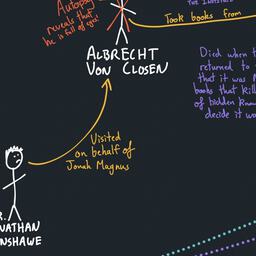 Autopsy
reveals that
he is full of eyes
Took books from
ALBRECHT
VON CLOSEN
Died when t
returned to
that it was
books that kill
of hidden know
decide it wa
Visited
on behalf of
Jonah Magnus
R.
NATHAN
NSHAWE